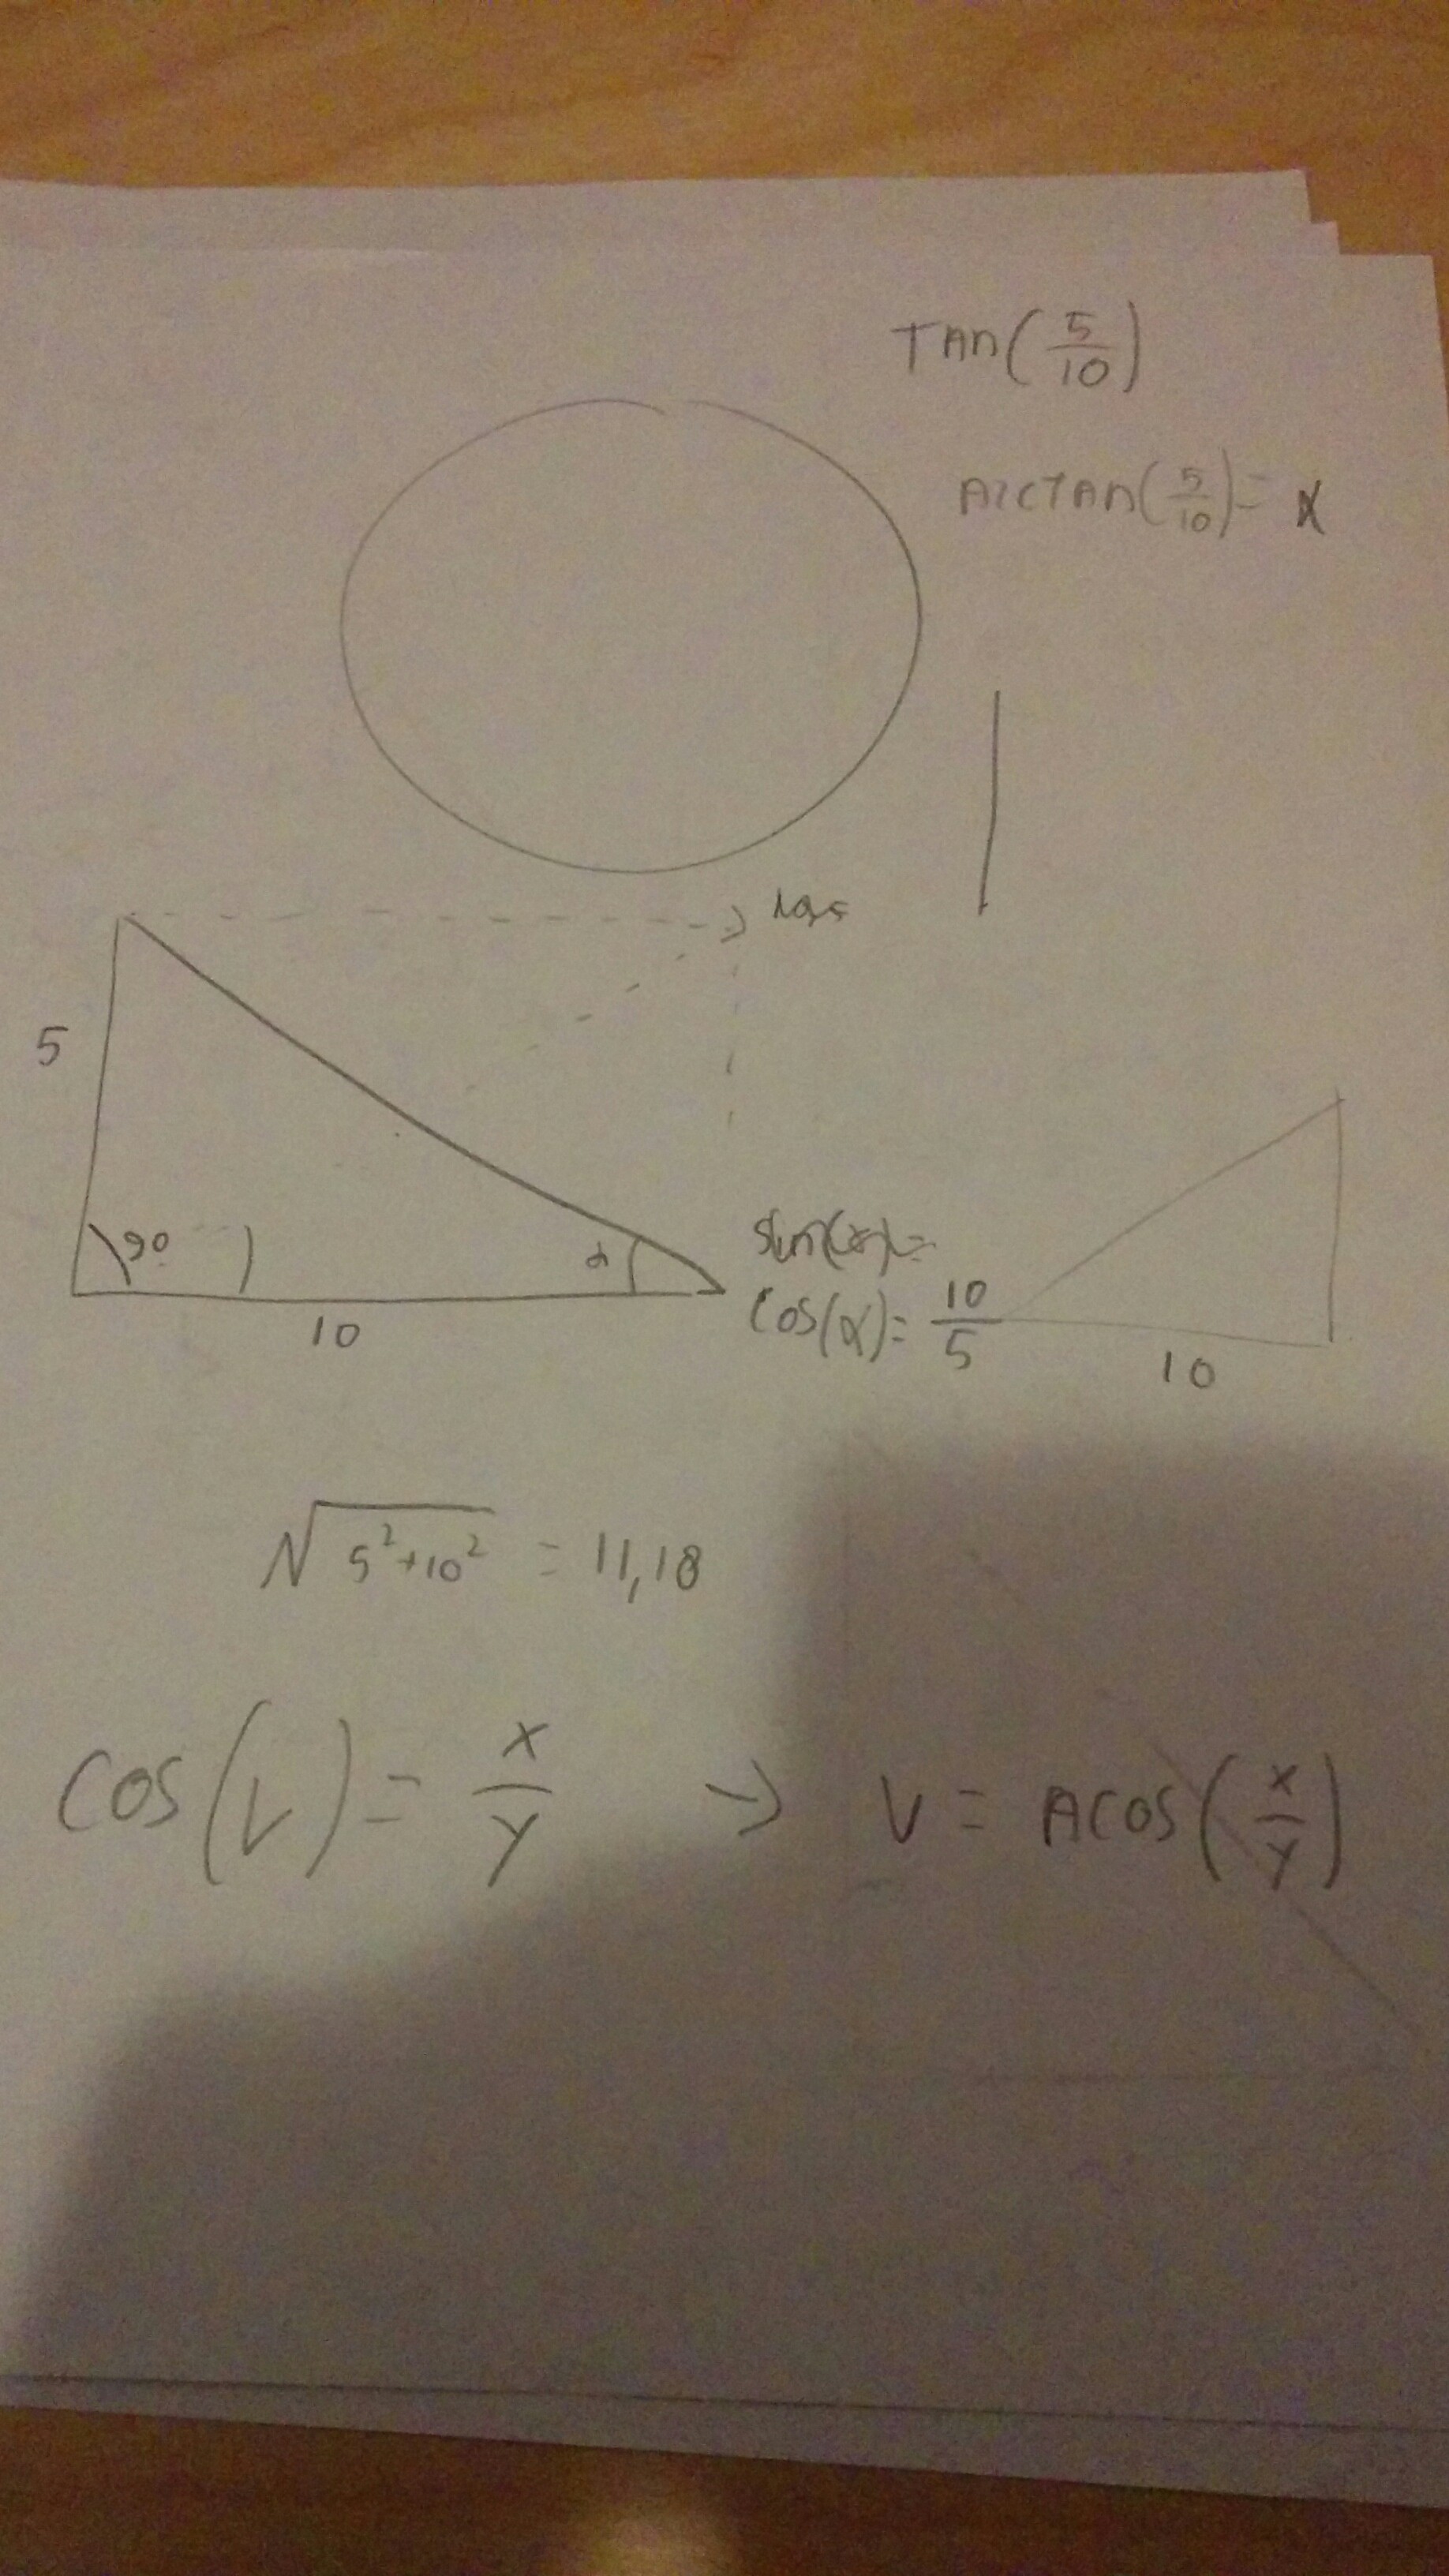 TAn(5/10)
ArcTAn(5/10)= α
5
90
α
10
Sin(α)=
Cos(α)= 10/5
10
√5²+10² = 11,18
Cos(V)= x/y → V = Acos(x/y)